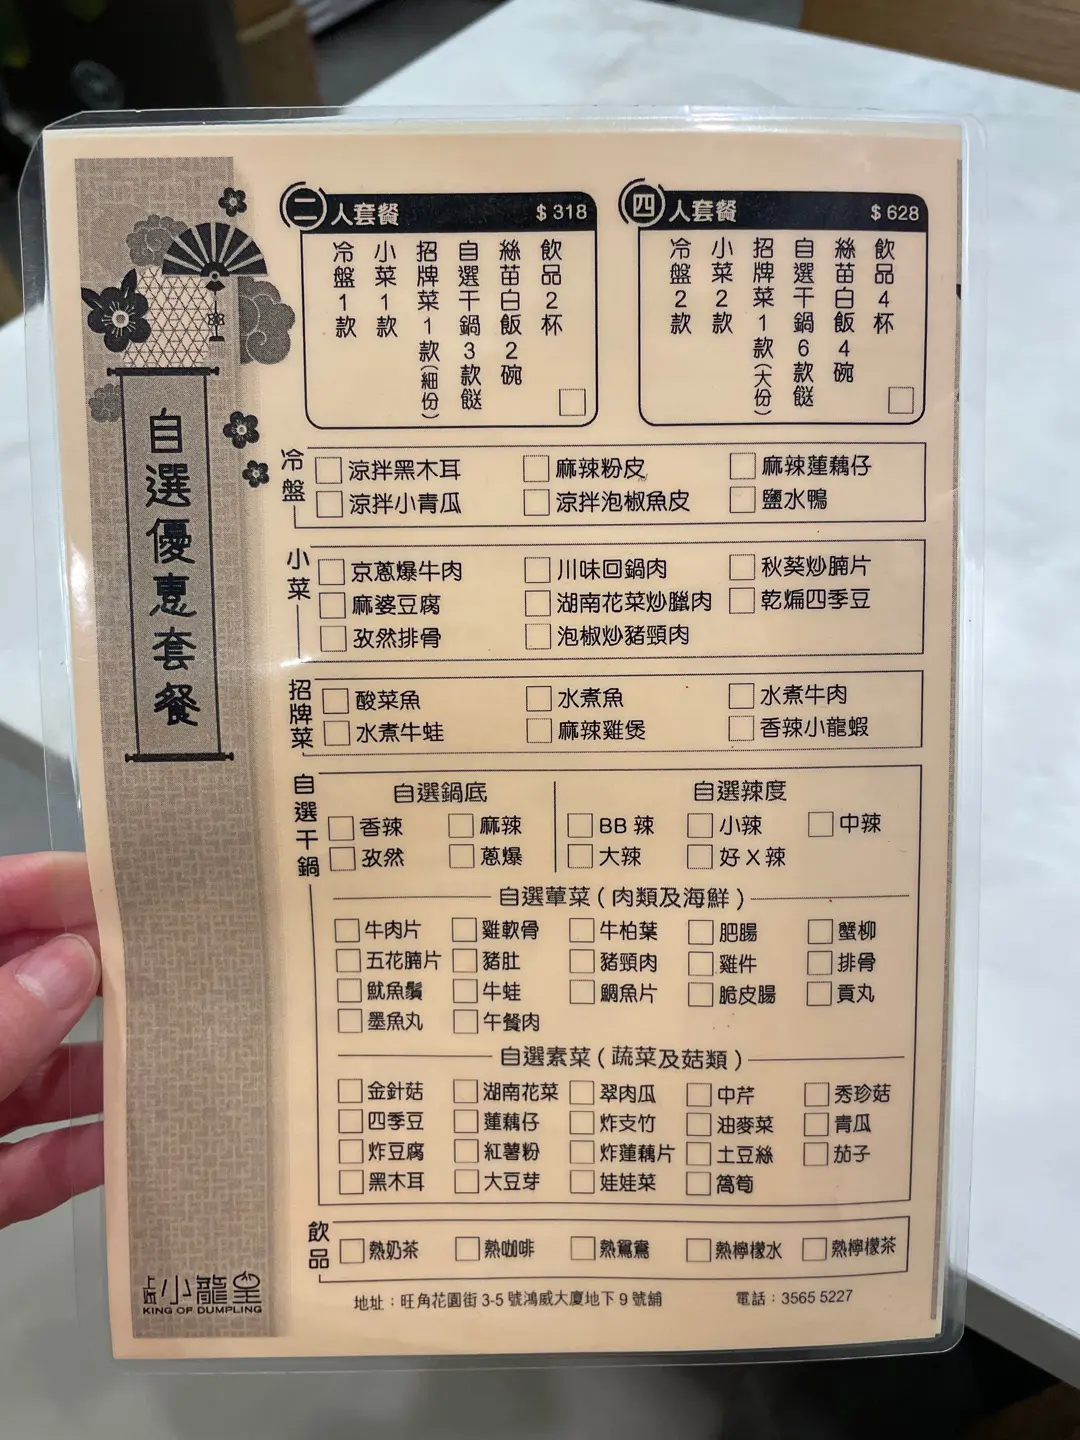 自選優惠套餐
二人套餐 $318
冷盤1款
小菜1款
招牌菜1款(細份)
自選干鍋3款餸
絲苗白飯2碗
飲品2杯
四人套餐 $628
冷盤2款
小菜2款
招牌菜1款(大份)
自選干鍋6款餸
絲苗白飯4碗
飲品4杯
冷盤
涼拌黑木耳 麻辣粉皮 麻辣蓮藕仔
涼拌小青瓜 涼拌泡椒魚皮 鹽水鴨
小菜
京蔥爆牛肉 川味回鍋肉 秋葵炒腩片
麻婆豆腐 湖南花菜炒臘肉 乾煸四季豆
孜然排骨 泡椒炒豬頸肉
招牌菜
酸菜魚 水煮魚 水煮牛肉
水煮牛蛙 麻辣雞煲 香辣小龍蝦
自選干鍋
自選鍋底 自選辣度
香辣 麻辣 BB 辣 小辣 中辣
孜然 蔥爆 大辣 好 X 辣
自選葷菜(肉類及海鮮)
牛肉片 雞軟骨 牛柏葉 肥腸 蟹柳
五花腩片 豬肚 豬頸肉 雞件 排骨
魷魚鬚 牛蛙 鯛魚片 脆皮腸 貢丸
墨魚丸 午餐肉
自選素菜(蔬菜及菇類)
金針菇 湖南花菜 翠肉瓜 中芹 秀珍菇
四季豆 蓮藕仔 炸支竹 油麥菜 青瓜
炸豆腐 紅薯粉 炸蓮藕片 土豆絲 茄子
黑木耳 大豆芽 娃娃菜 萵筍
飲品
熱奶茶 熱咖啡 熱鴛鴦 熱檸檬水 熱檸檬茶
小籠皇
KING OF DUMPLING
地址：旺角花園街 3-5 號鴻威大廈地下 9 號舖 電話：3565 5227